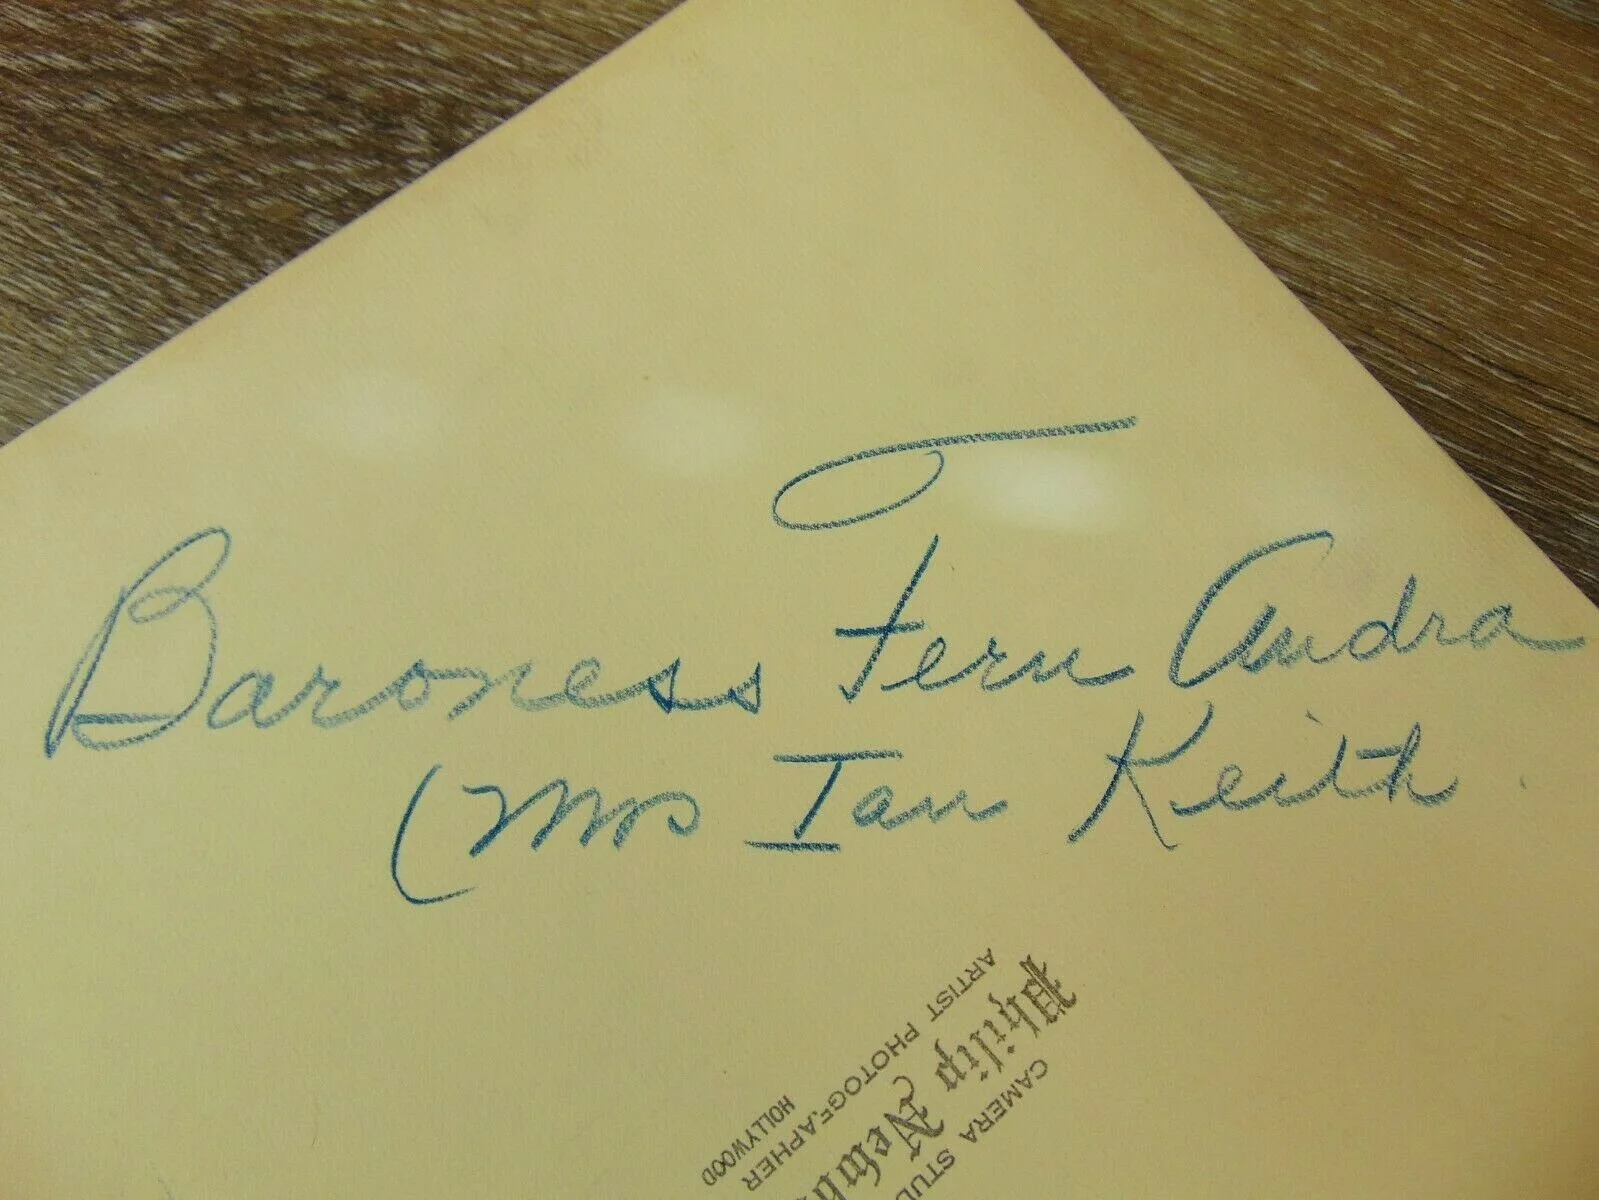 Baroness Fern Andra
(Mrs Ian Keith
CAMERA
Philip
ARTIST PHOTOGRAPHER
HOLLYWOOD